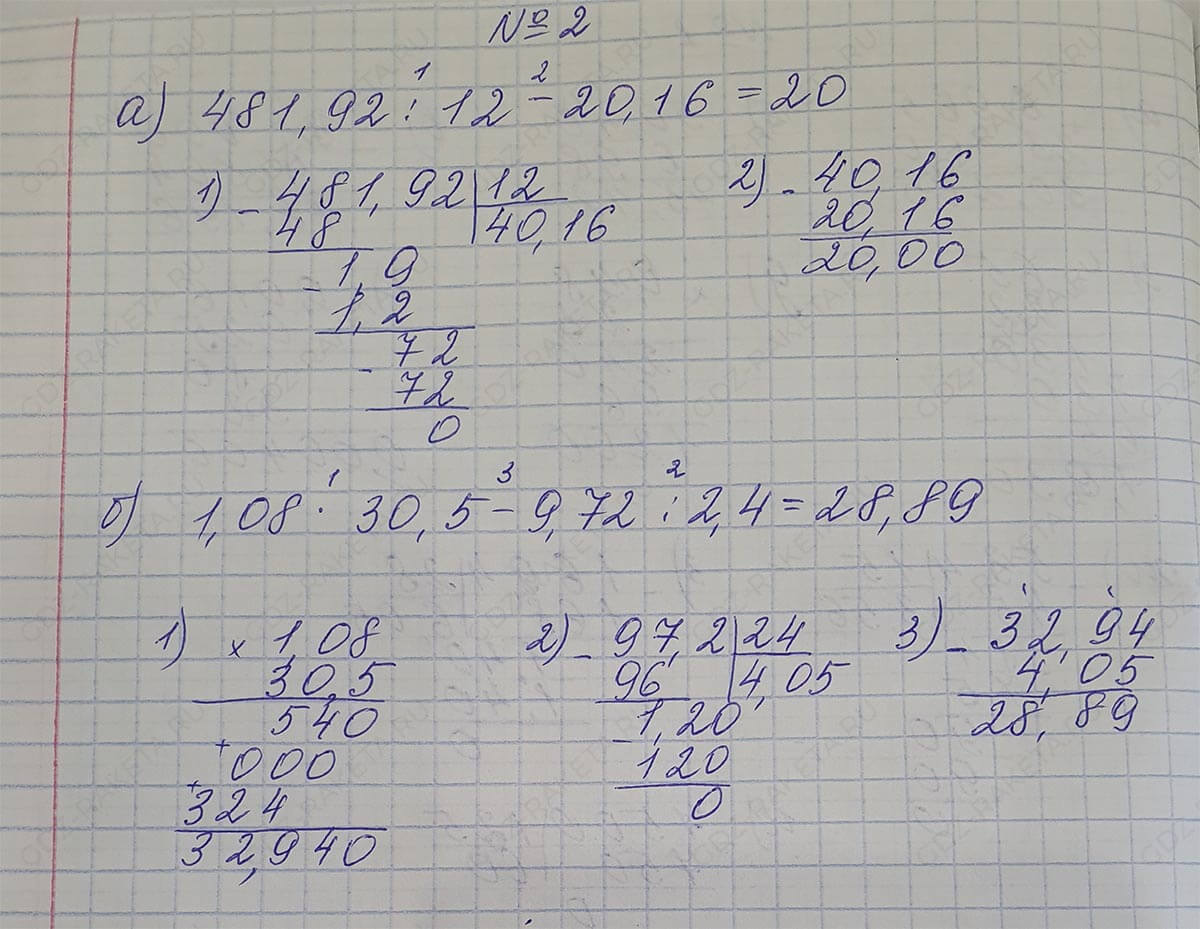 № 2
а) 481,92 : 12 - 20,16 = 20
1 2
1) - 481,92 | 12
48 | 40,16
- 1,9
1,2
- 72
72
0
2) - 40,16
20,16
20,00
б) 1,08 · 30,5 - 9,72 : 2,4 = 28,89
1 3 2
1) × 1,08
30,5
540
+ 000
+ 324
32,940
2) - 97,2 | 24
96 | 4,05
- 1,20
120
0
3) - 32,94
4,05
28,89